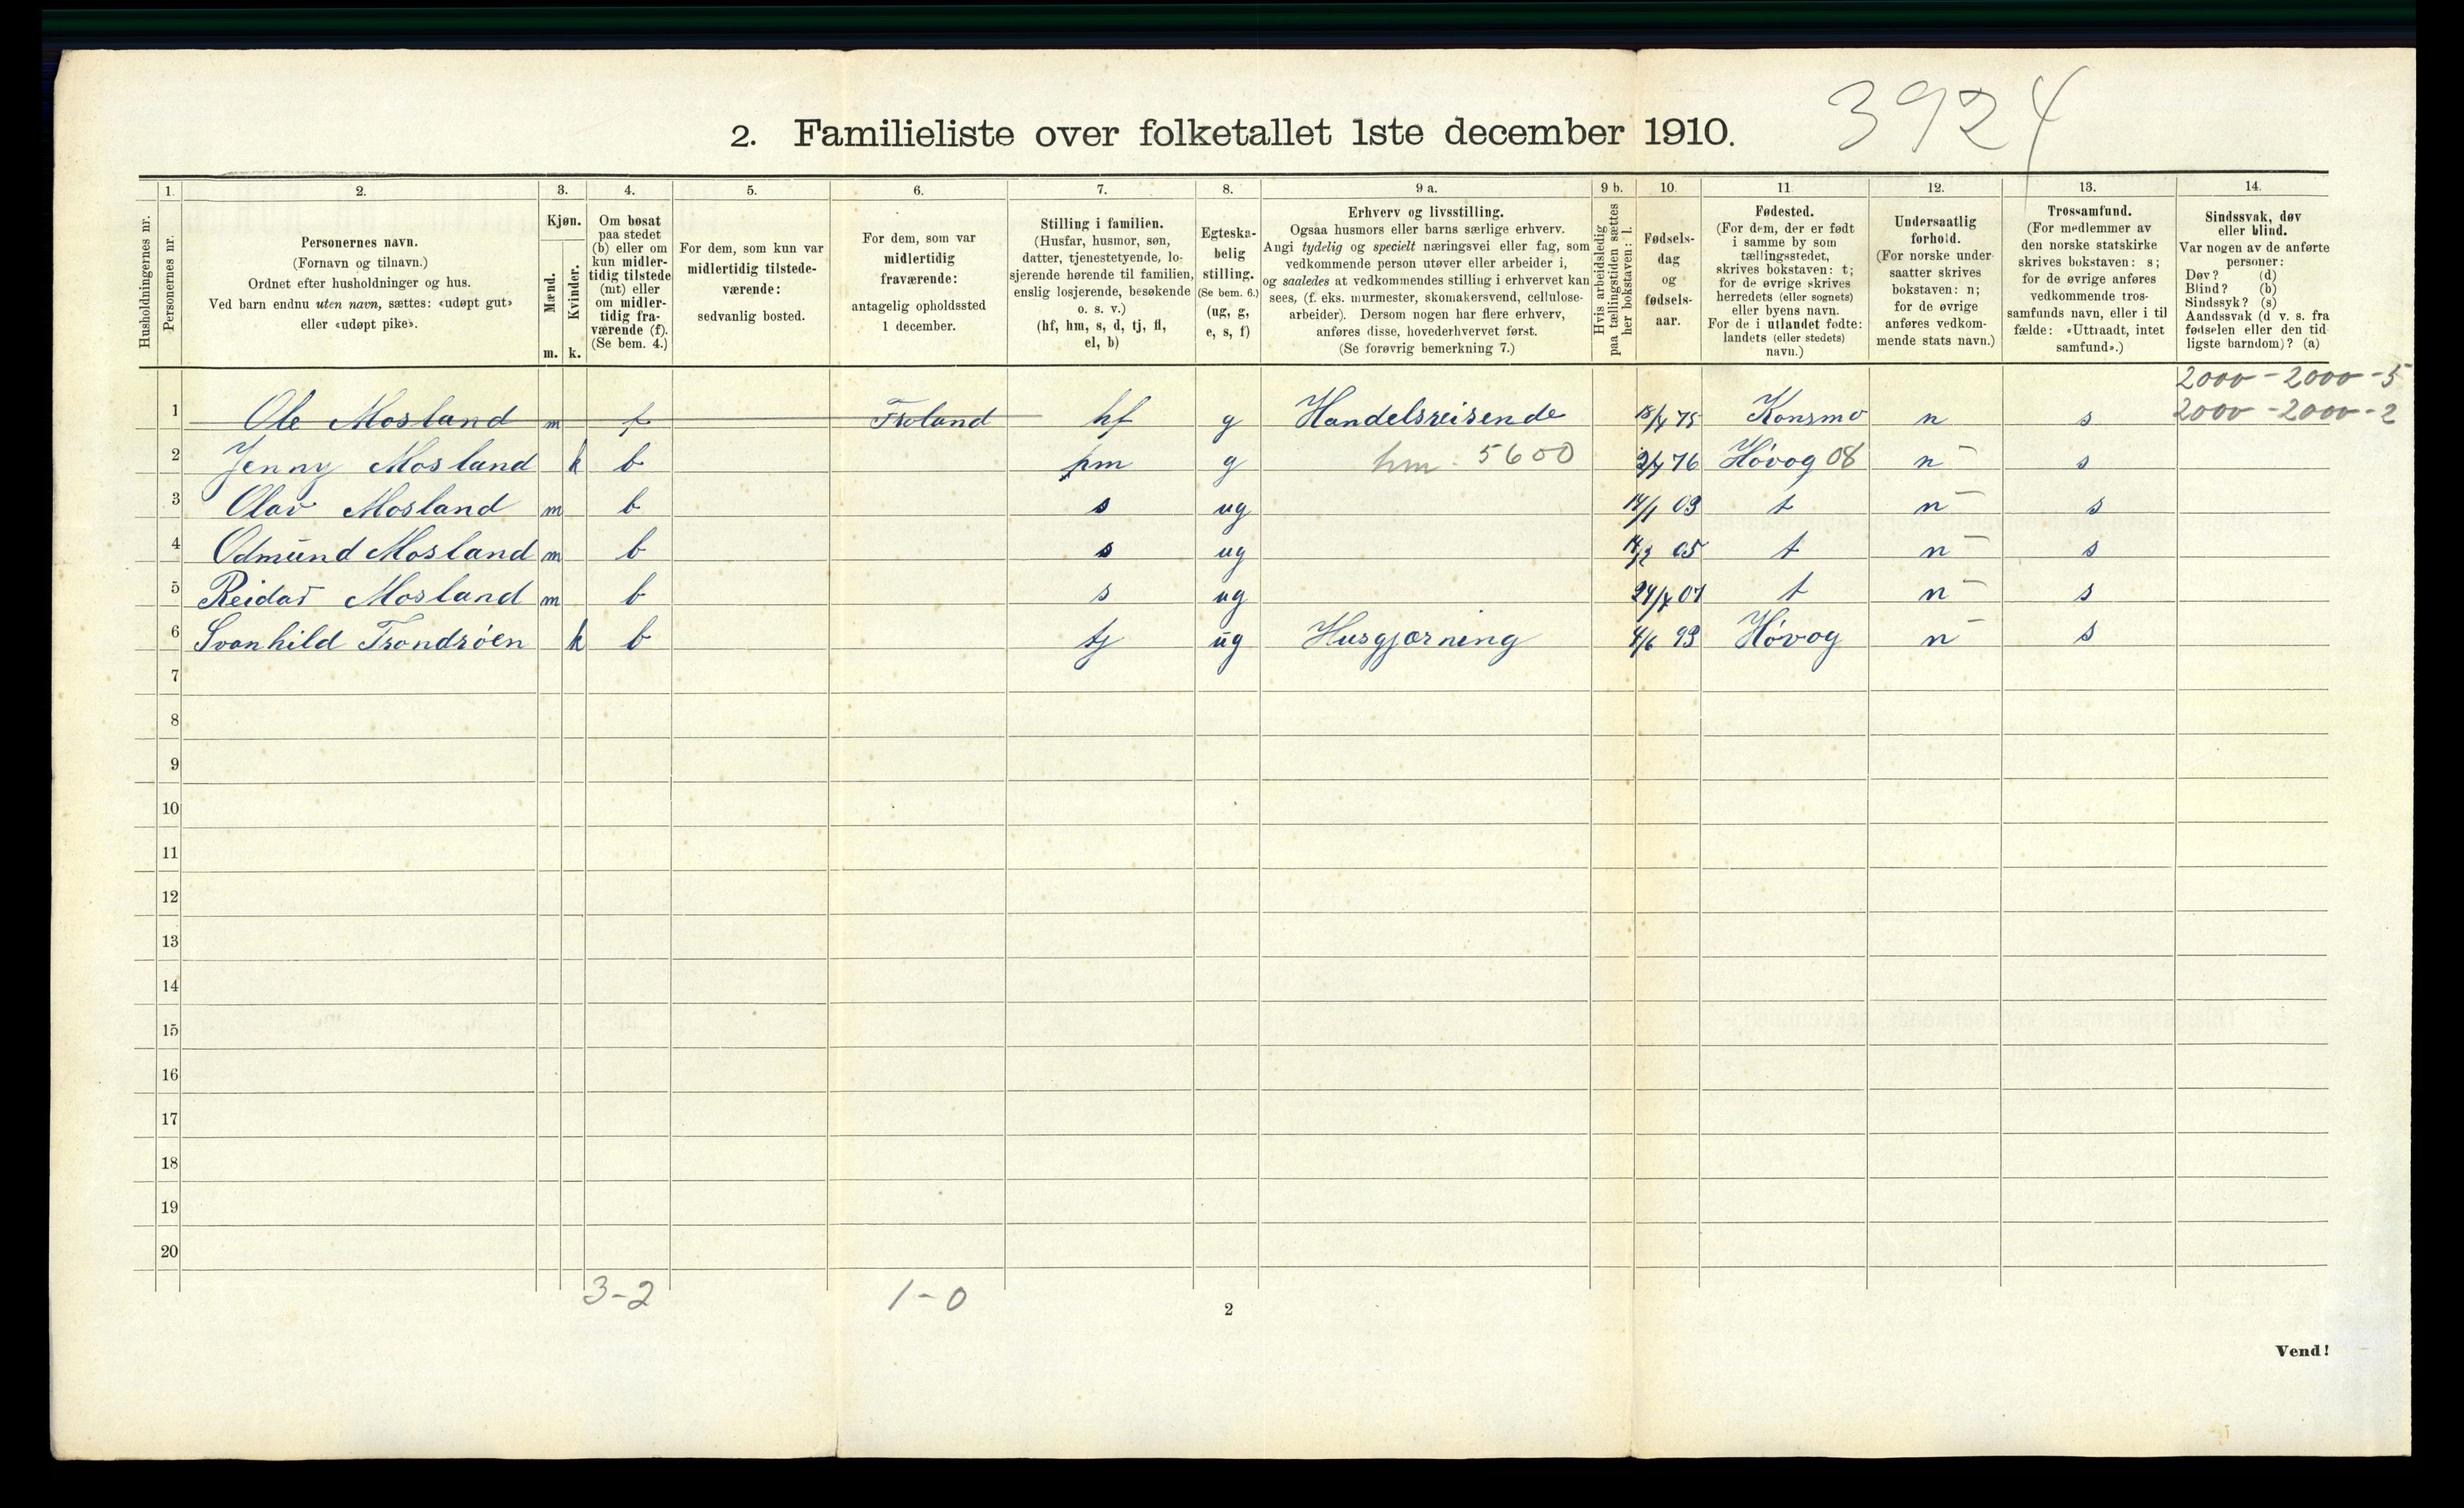 3924
2. Familieliste over folketallet 1ste december 1910.
Husholdningernes nr.
1. Personernes nr.
2. Personernes navn. (Fornavn og tilnavn.) Ordnet efter husholdninger og hus. Ved barn endnu uten navn, sættes: «udøpt gut» eller «udøpt pike».
3. Kjøn. Mænd. m. Kvinder. k.
4. Om bosat paa stedet (b) eller om kun midlertidig tilstede (mt) eller om midlertidig fraværende (f). (Se bem. 4.)
5. For dem, som kun var midlertidig tilstedeværende: sedvanlig bosted.
6. For dem, som var midlertidig fraværende: antagelig opholdssted 1 december.
7. Stilling i familien. (Husfar, husmor, søn, datter, tjenestetyende, losjerende hørende til familien, enslig losjerende, besøkende o. s. v.) (hf, hm, s, d, tj, fl, el, b)
8. Egteskabelig stilling. (Se bem. 6.) (ug, g, e, s, f)
9 a. Erhverv og livsstilling. Ogsaa husmors eller barns særlige erhverv. Angi tydelig og specielt næringsvei eller fag, som vedkommende person utøver eller arbeider i, og saaledes at vedkommendes stilling i erhvervet kan sees, (f. eks. murmester, skomakersvend, cellulose-arbeider). Dersom nogen har flere erhverv, anføres disse, hovederhvervet først. (Se forøvrig bemerkning 7.)
9 b. Hvis arbeidsledig paa tællingstiden sættes her bokstaven: l.
10. Fødselsdag og fødselsaar.
11. Fødested. (For dem, der er født i samme by som tællingsstedet, skrives bokstaven: t; for de øvrige skrives herredets (eller sognets) eller byens navn. For de i utlandet fødte: landets (eller stedets) navn.)
12. Undersaatlig forhold. (For norske undersaatter skrives bokstaven: n; for de øvrige anføres vedkommende stats navn.)
13. Trossamfund. (For medlemmer av den norske statskirke skrives bokstaven: s; for de øvrige anføres vedkommende trossamfunds navn, eller i tilfælde: «Uttraadt, intet samfund».)
14. Sindssvak, døv eller blind. Var nogen av de anførte personer: Døv? (d) Blind? (b) Sindssyk? (s) Aandssvak (d v. s. fra fødselen eller den tidligste barndom)? (a)
2000 - 2000 - 5
1 Ole Mosland m f Froland hf g Handelsreisende 18/4 75 Konsmo n s 2000 - 2000 - 2
2 Jenny Mosland k b hm g hm. 5600 76 Høvog 08 n s
3 Olav Mosland m b s ug 14/1 03 t n s
4 Odmund Mosland m b s ug 05 t n s
5 Reidar Mosland m b s ug 07 t n s
6 Svanhild Trondrøen k b tj ug Husgjærning 4/6 93 Høvog n s
7
8
9
10
11
12
13
14
15
16
17
18
19
20
3-2 1-0
2
Vend!